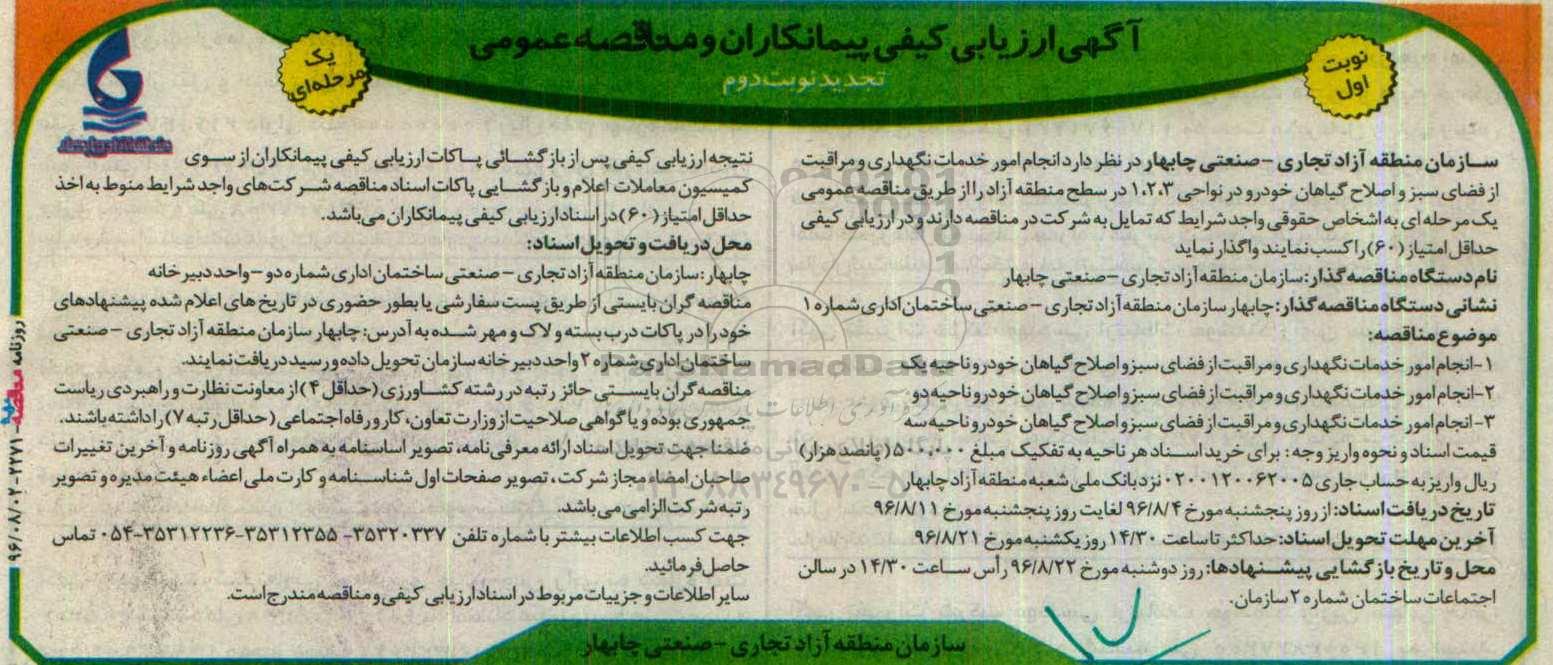 آگهی ارزیابی کیفی پیمانکاران و مناقصه عمومی
تجدید نوبت دوم
نوبت اول
یک مرحله‌ای
ســازمان منطقه آزاد تجاری - صنعتی چابهار در نظر دارد انجام امور خدمات نگهداری و مراقبت
از فضای سبز و اصلاح گیاهان خودرو در نواحی ۱،۲،۳ در سطح منطقه آزاد را از طریق مناقصه عمومی
یک مرحله ای به اشخاص حقوقی واجد شرایط که تمایل به شرکت در مناقصه دارند و در ارزیابی کیفی
حداقل امتیاز (۶۰) را کسب نمایند واگذار نماید
نام دستگاه مناقصه گذار: سازمان منطقه آزاد تجاری - صنعتی چابهار
نشانی دستگاه مناقصه گذار: چابهار سازمان منطقه آزاد تجاری - صنعتی ساختمان اداری شماره ۱
موضوع مناقصه:
۱- انجام امور خدمات نگهداری و مراقبت از فضای سبز و اصلاح گیاهان خودرو ناحیه یک
۲- انجام امور خدمات نگهداری و مراقبت از فضای سبز و اصلاح گیاهان خودرو ناحیه دو
۳- انجام امور خدمات نگهداری و مراقبت از فضای سبز و اصلاح گیاهان خودرو ناحیه سه
قیمت اسناد و نحوه واریز وجه: برای خرید اسـناد هر ناحیه به تفکیک مبلغ ۵۰۰,۰۰۰ (پانصد هزار)
ریال واریز به حساب جاری ۰۲۰۰۱۲۰۰۶۲۰۰۵ نزد بانک ملی شعبه منطقه آزاد چابهار
تاریخ دریافت اسناد: از روز پنجشنبه مورخ ۹۶/۸/۴ لغایت روز پنجشنبه مورخ ۹۶/۸/۱۱
آخرین مهلت تحویل اسناد: حداکثر تا ساعت ۱۴/۳۰ روز یکشنبه مورخ ۹۶/۸/۲۱
محل و تاریخ بازگشایی پیشــنهادها: روز دوشنبه مورخ ۹۶/۸/۲۲ رأس ســاعت ۱۴/۳۰ در سالن
اجتماعات ساختمان شماره ۲ سازمان.
نتیجه ارزیابی کیفی پس از باز گشــائی پــاکات ارزیابی کیفی پیمانکاران از ســوی
کمیسیون معاملات اعلام و باز گشــایی پاکات اسناد مناقصه شــرکت‌های واجد شرایط منوط به اخذ
حداقل امتیاز (۶۰) در اسناد ارزیابی کیفی پیمانکاران می‌باشد.
محل دریافت و تحویل اسناد:
چابهار: سازمان منطقه آزاد تجاری - صنعتی ساختمان اداری شماره دو - واحد دبیرخانه
مناقصه گران بایستی از طریق پست سفارشی یا بطور حضوری در تاریخ های اعلام شده پیشنهادهای
خود را در پاکات درب بسته و لاک و مهر شــده به آدرس: چابهار سازمان منطقه آزاد تجاری - صنعتی
ساختمان اداری شماره ۲ واحد دبیرخانه سازمان تحویل داده و رسید دریافت نمایند.
مناقصه گران بایســتی حائز رتبه در رشته کشــاورزی (حداقل ۴) از معاونت نظارت و راهبردی ریاست
جمهوری بوده و یا گواهی صلاحیت از وزارت تعاون، کار و رفاه اجتماعی (حداقل رتبه ۷) را داشته باشند.
ضمنا جهت تحویل اسناد ارائه معرفی نامه، تصویر اساسنامه به همراه آگهی روزنامه و آخرین تغییرات
صاحبان امضاء مجاز شرکت، تصویر صفحات اول شناســنامه و کارت ملی اعضاء هیئت مدیره و تصویر
رتبه شرکت الزامی می باشد.
جهت کسب اطلاعات بیشتر با شماره تلفن ۳۵۳۲۰۳۳۷- ۳۵۳۱۲۳۵۵-۳۵۳۱۲۲۳۶-۰۵۴ تماس
حاصل فرمائید.
سایر اطلاعات و جزییات مربوط در اسناد ارزیابی کیفی و مناقصه مندرج است.
سازمان منطقه آزاد تجاری - صنعتی چابهار
روزنامه مناقصه - ۲۲۷۱ - ۹۶/۰۸/۰۲
ParsNamadData
۰۲۱-۸۸۳۴۹۶۷۰-۵